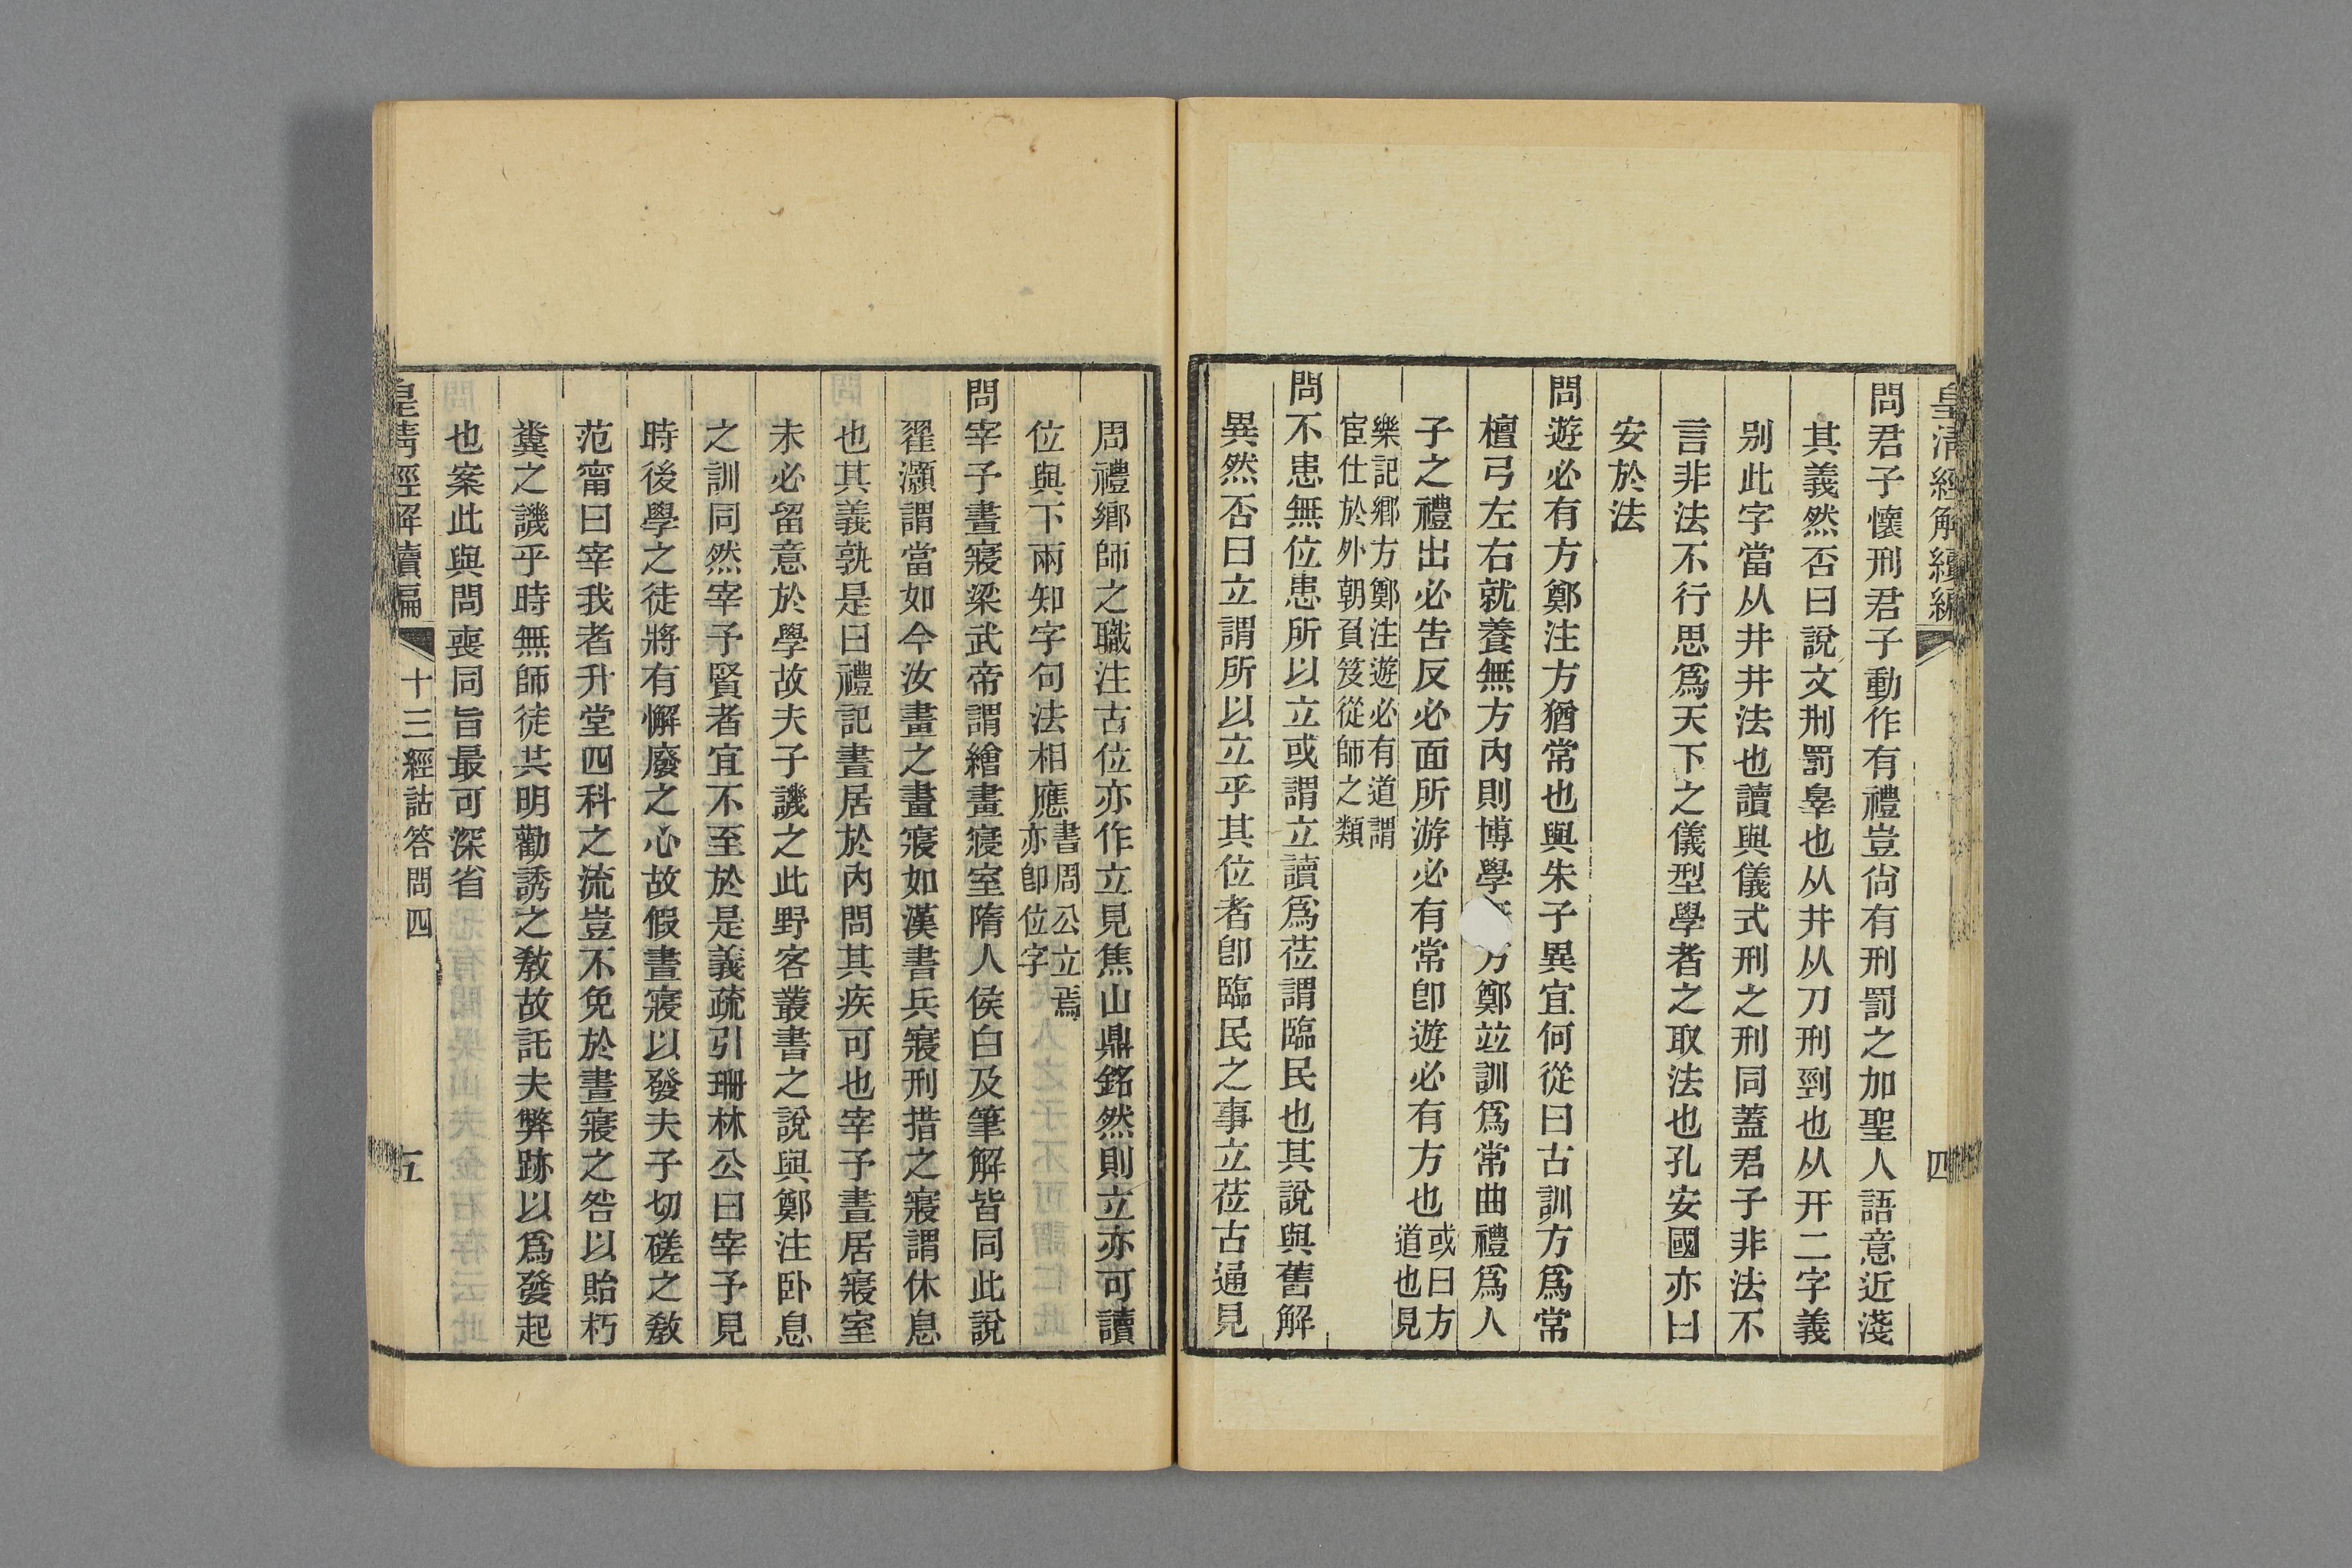 皇清經解續編
四
問君子懷刑君子動作有禮豈尙有刑罰之加聖人語意近淺
其義然否曰說文刑罰辠也从井从刀刑剄也从幵二字義
别此字當从井井法也讀與儀式刑之刑同蓋君子非法不
言非法不行思爲天下之儀型學者之取法也孔安國亦曰
安於法
問遊必有方鄭注方猶常也與朱子異宜何從曰古訓方爲常
檀弓左右就養無方內則博學方鄭竝訓爲常曲禮爲人
子之禮出必告反必面所游必有常卽遊必有方也或曰方
道也見
樂記鄉方鄭注遊必有道謂
宦仕於外朝負笈從師之類
問不患無位患所以立或謂立讀爲莅謂臨民也其說與舊解
異然否曰立謂所以立乎其位者卽臨民之事立莅古通見
周禮鄉師之職注古位亦作立見焦山鼎銘然則立亦可讀
位與下兩知字句法相應書周公立焉
亦卽位字
問宰予晝寢梁武帝謂繪畫寢室隋人侯白及筆解皆同此說
翟灝謂當如今汝畫之畫寢如漢書兵寢刑措之寢謂休息
也其義孰是曰禮記晝居於內問其疾可也宰予晝居寢室
未必留意於學故夫子譏之此野客叢書之說與鄭注卧息
之訓同然宰予賢者宜不至於是義疏引珊林公曰宰予見
時後學之徒將有懈廢之心故假晝寢以發夫子切磋之敎
范甯曰宰我者升堂四科之流豈不免於晝寢之咎以貽朽
糞之譏乎時無師徒共明勸誘之敎故託夫弊跡以爲發起
也案此與問喪同旨最可深省
皇清經解續編
十三經詁答問四
五